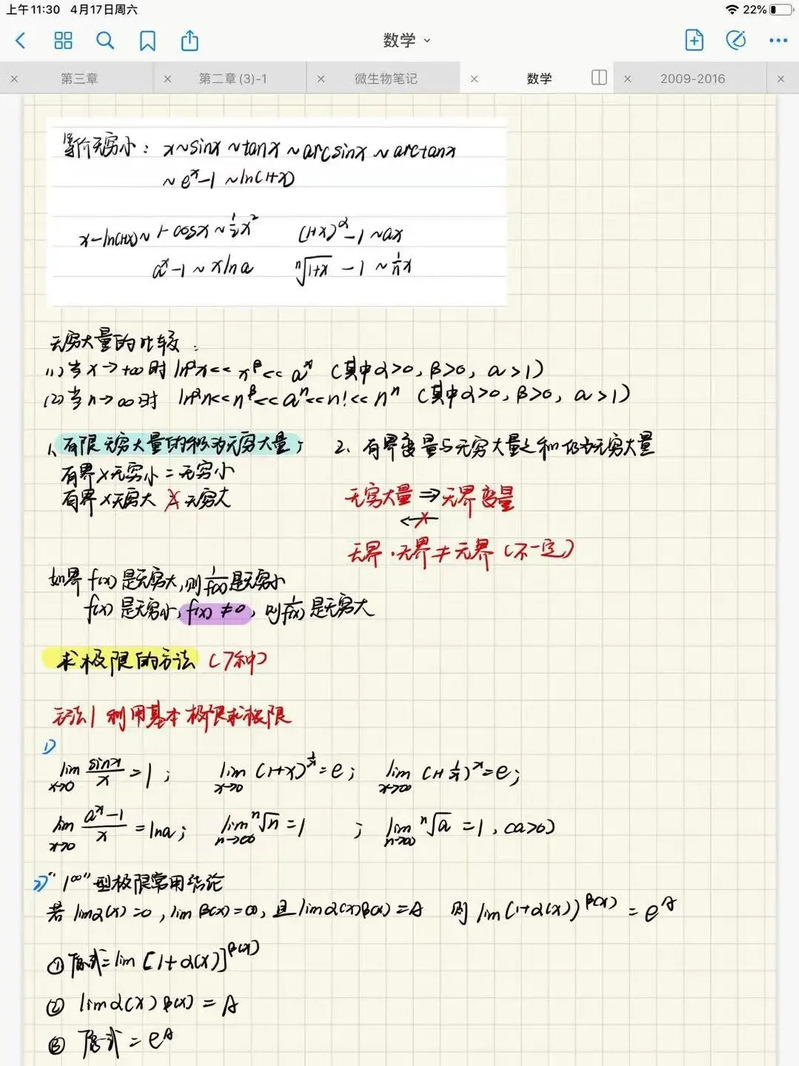 上午11:30 4月17日周六 22%
数学
第三章 第二章 (3)-1 微生物笔记 数学 2009-2016
等价无穷小: x~sinx~tanx~arcsinx~arctanx
~e^x-1~ln(1+x)
x-ln(1+x)~1-cosx~½x² (1+x)^α-1~αx
a^x-1~xlna ⁿ√(1+x) -1~(1/n)x
无穷大量的比较:
(1)当x→+∞时 ln^αx<<x^β<<a^x (其中α>0, β>0, a>1)
(2)当n→∞时 ln^αn<<n^β<<a^n<<n!<<n^n (其中α>0, β>0, a>1)
1、有限无穷大量的积为无穷大量; 2、有界变量与无穷大量之和仍为无穷大量
有界×无穷小=无穷小
有界×无穷大 ≠ 无穷大
无穷大量 ⇒ 无界变量
无界·无界≠无界(不一定)
如果f(x)是无穷大,则1/f(x)是无穷小
f(x)是无穷小,f(x)≠0,则1/f(x)是无穷大
求极限的方法(7种)
方法1 利用基本极限求极限
1)
lim(x→0) sinx/x=1; lim(x→0)(1+x)^(1/x)=e; lim(x→∞)(1+1/x)^x=e;
lim(x→0) (a^x-1)/x=lna; lim(n→∞) ⁿ√n=1; lim(n→∞) ⁿ√a=1, (a>0)
2)"1^∞"型极限常用结论
若limα(x)=0, limβ(x)=∞, 且limα(x)β(x)=A 则lim(1+α(x))^β(x)=e^A
①原式=lim[1+α(x)]^β(x)
②limα(x)β(x)=A
③原式=e^A